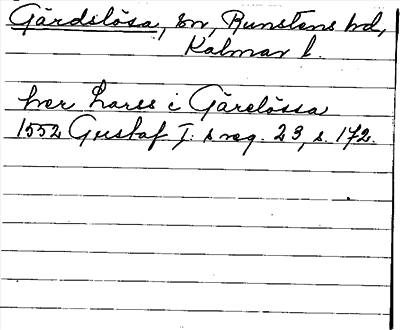 Gärdslösa, sn, Runstens hd,
Kalmar l.
her Larss i Gärelössa
1552 Gustaf I:s reg. 23, s. 172.